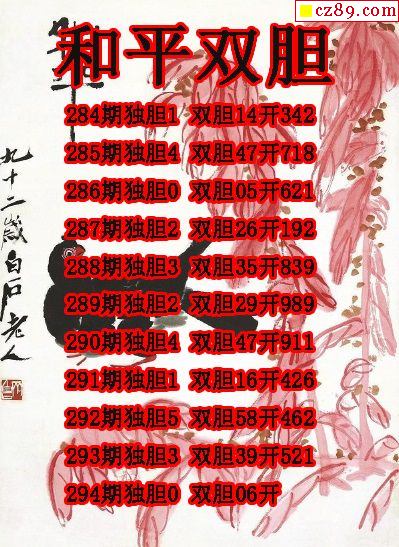 cz89.com
和平双胆
284期独胆1 双胆14开342
285期独胆4 双胆47开718
286期独胆0 双胆05开621
287期独胆2 双胆26开192
288期独胆3 双胆35开839
289期独胆2 双胆29开989
290期独胆4 双胆47开911
291期独胆1 双胆16开426
292期独胆5 双胆58开462
293期独胆3 双胆39开521
294期独胆0 双胆06开
九十二岁白石老人